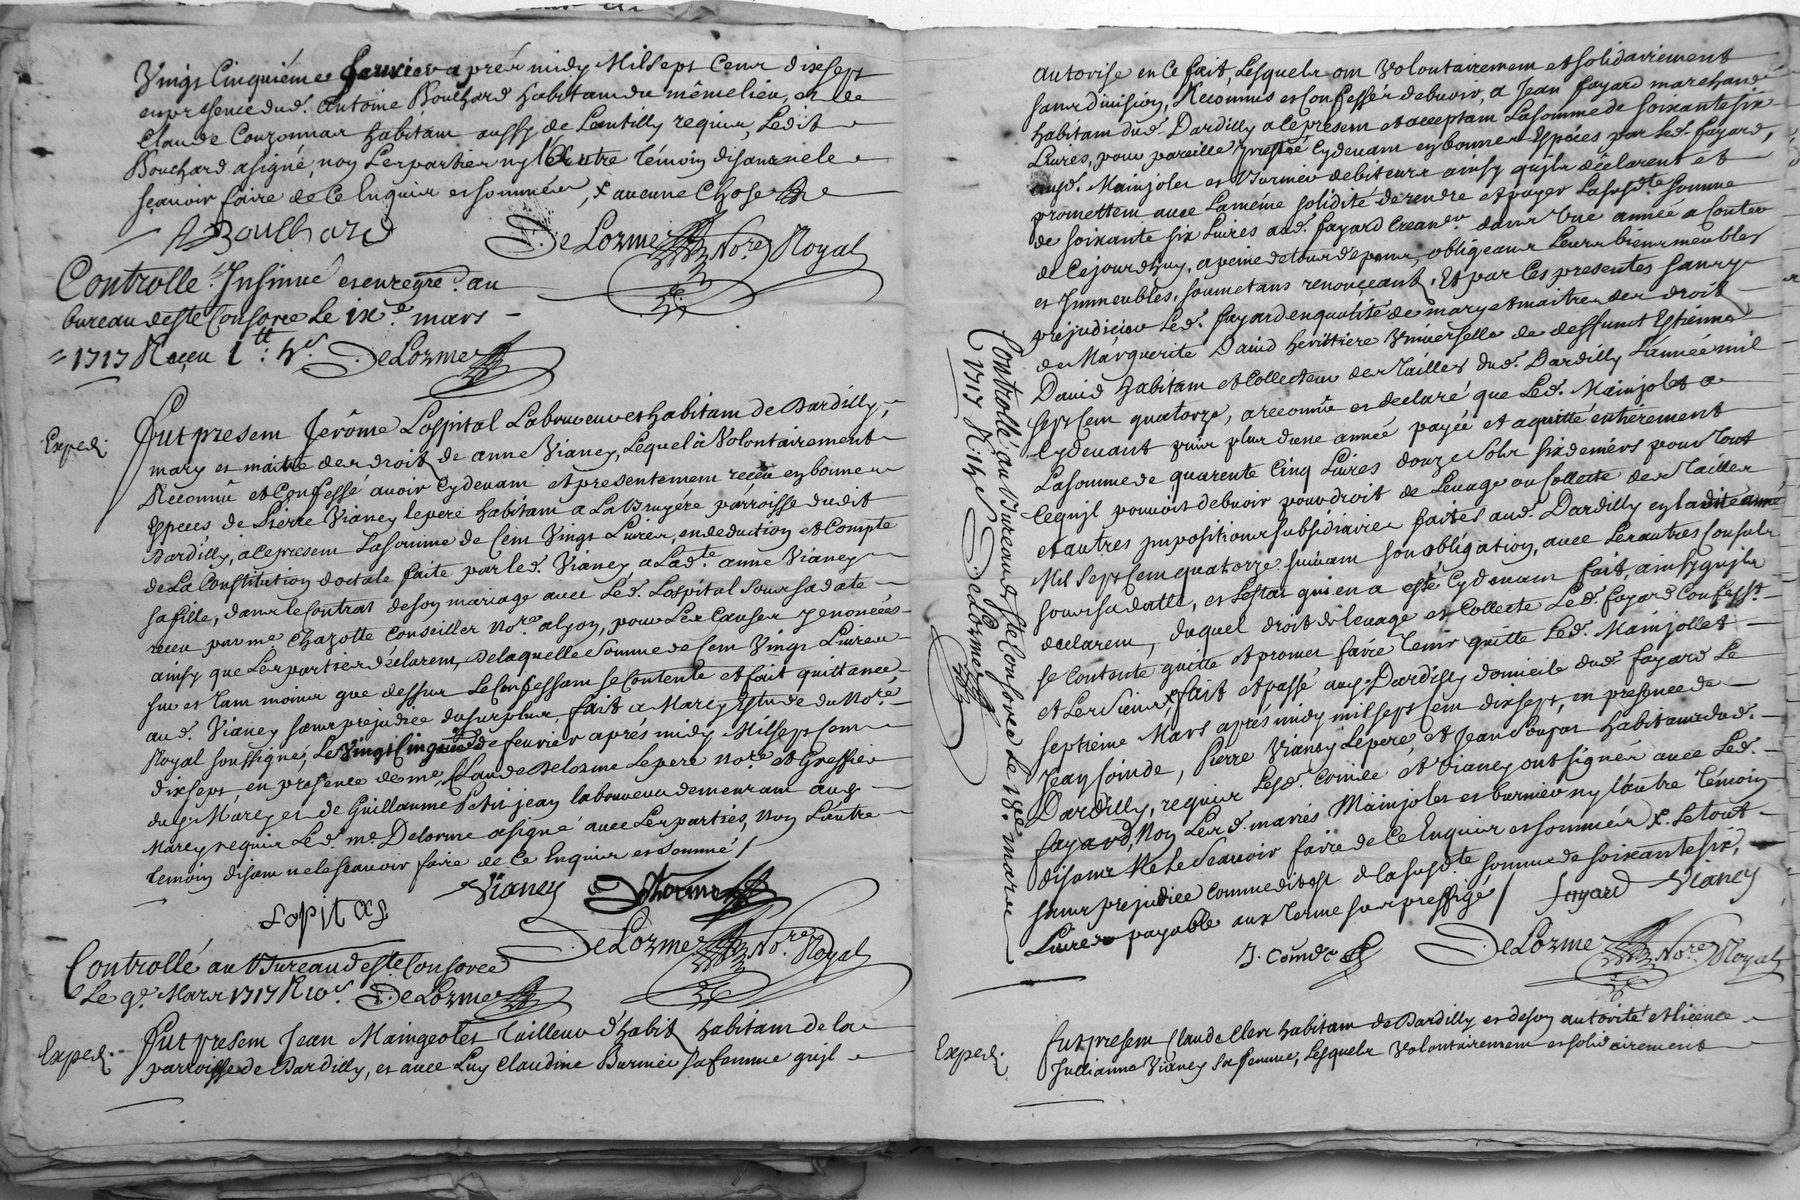 Vingt Cinquiéme Janvier aprés midy Mil sept Cent dix sept
en presence dud. Antoine Bouchard habitam du même lieu, et de
Claude Couzonnar habitam aussy de Lentilly requis, Ledit
Bouchard a signé, non Les parties ny L'autre témoin disans ne le
sçavoir faire de Ce Enquis et sommées, aucune chose
ABouchard
DeLorme No.re Royal
Controlle Insinué et enregré. au
bureau de ste Consorce Le ix.e mars
1717 Reçeu 1 tt: 4 s. DeLorme
Exped.
fut presem Jerôme Lospital Laboureur et habitam de Dardilly,
mary et maitre des droits de anne Vianey, Lequel à Volontairement
Reconnû et Confessé avoir Cydevam et presentement reçeu en bonnes
Especes de Pierre Vianey le pere habitam a La Bruyére parroisse dudit
Dardilly, a Ce presem La somme de Cem Vingt Livres, en deduction et Compte
de La Constitution doctale faite par led. Vianey a Lad.te anne Vianey
sa fille, dans le Contrat de son mariage avec Led. Lospital sous sa date
receu par me Chazotte Conseiller No.re a lyon, pour Les Causes y enoncées
ainsy que Les parties déclarem, de laquelle Somme de Cem Vingt Livres
sue et tam moins que dessus Le Confessam se Contente et fait quittance
aud. Vianey sans prejudice du surplus, fait a Marcy Estude du No.re
Royal soussigné, Le Vingt Cinquie de fevrier aprés midy Mil sept Cem
dix sept en presence de me Claude Delorme Le pere No.re et Greffier
dud. Marcy et de Guillaume Petit jean laboureur demeurant aud.
Marcy requis Led. me. Delorme a signé avec Les parties, non L'autre
temoin disam ne le sçavoir faire de Ce Enquis et sommé
Vianey Delorme
Lopital
DeLorme No.re Royal
Controllé au Bureau de ste Consorce
Le 9.e Mars 1717 R 10 s. DeLorme
Exped.
fut presem Jean Maingeolet Tailleur d'habit habitam de la
parroisse de Dardilly, et avec Luy Claudine Burnier sa femme qu'il
autorise en Ce fait, Lesquels on Volontairemem et solidairement
sans division, Reconnus et Confessér debvoir, a Jean fayard marchand
habitam dud. Dardilly a Ce presem et acceptam La somme de soixante six
Livres, pour pareille presté Cydevam en bonnes Espéces par Led. fayard,
ausd. Mainjolet et Burnier debiteurs ainsy qu'ils déclarent et
promettem avec La même solidité de rendre et payer La susd.te somme
de soixante six Livres aud. fayard Crean.er dans Une année a Conter
de Ce jourd'huy, a peine de tous depens, obligeans Leurs biens meubles
et Immeubles, soumetans renonceant. Et par Ces presentes sans y
prejudicier Led. fayard en qualité de mary et maitre des droits
de Marguerite David hérittiere Universelle de deffunct Estienne
David habitam et Collecteur des Tailles dud. Dardilly l'année mil
sept Cem quatorze, a reconnû et declaré que Led. Mainjolet a
Cydevant puis plus d'une année payée et aquitté entiérement
La somme de quarente Cinq Livres douze sols six deniers pour tout
Ce qu'il pouvoit debvoir pour droit de Levage ou Collecte des Tailles
et autres Impositions subsidiaires faites aud. Dardilly en ladite année
Mil sept Cem quatorze suivam son obligation, avec Les autres Consuls
sous sa datte, et L'estat qui en a esté Cydevam fait, ainsy qu'ils
declarem, duquel droit de levage et Collecte Led. fayard Confess.t
se Contente quitte et promet faire tenir quitte Led. Mainjollet
et Les Siens, fait et passé aud. Dardilly domicile dud. fayard Le
septiéme Mars aprés midy mil sept Cem dix sept, en presence de
Jean Coinde, Pierre Vianey Le pere, et Jean habitans dud.
Dardilly, requis Lesd. Coinde et Vianey ont signér avec Led.
fayard, Non Lesd. mariés Mainjolet et burnier ny L'autre témoin
disans Ne le Sçavoir faire de Ce Enquis et sommér. Le tout
sans prejudice comme dit est de la susd.te somme de soixante six,
Livres payable aux terme sus preffigé
fayard Vianey
J. Coinde
DeLorme No.re Royal
Controllé au Bureau de ste Consorce Le 18.e mars
1717 DeLorme
Exped.
fut presem Claude Clerc habitam de Dardilly et de son autorité et licence
Jullianne Vianey sa femme, Lesquels Volontairemem et solidairement